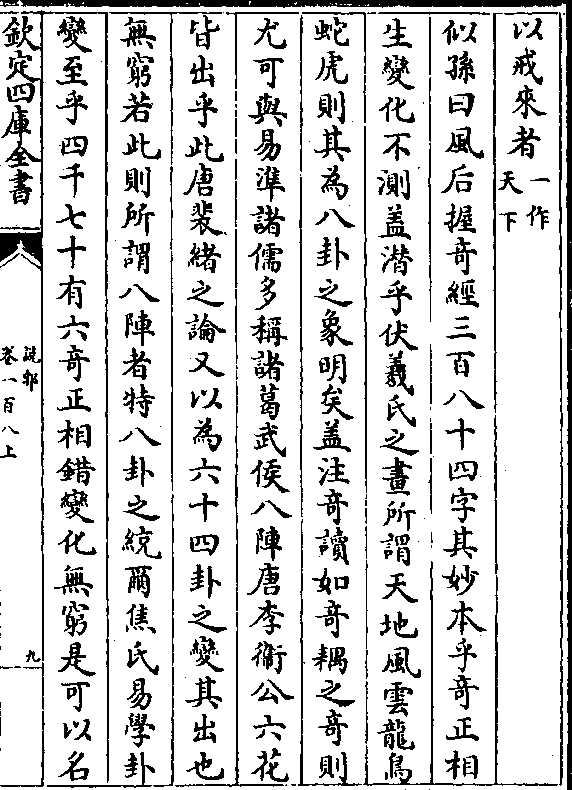 以戒來者一作天下
似孫曰風后握奇經三百八十四字其妙本乎奇正相
生變化不測盖潜乎伏羲氏之畫所謂天地風雲龍鳥
蛇虎則其為八卦之象明矣盖注奇讀如奇耦之奇則
尤可與易準諸儒多稱諸葛武侯八陣唐李衛公六花
皆出乎此唐裴緒之論又以為六十四卦之變其出也
無窮若此則所謂八陣者特八卦之統爾焦氏易學卦
變至乎四千七十有六奇正相錯變化無窮是可以名
欽定四庫全書
說郛
卷一百八上
九